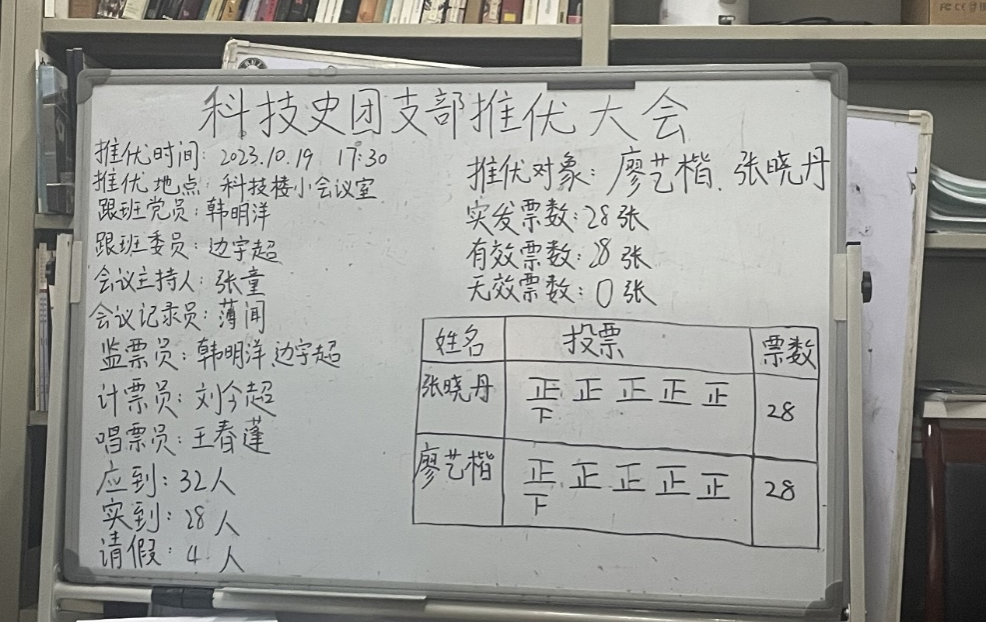 科技史团支部推优大会
推优时间: 2023.10.19 17:30
推优地点: 科技楼小会议室
跟班党员: 韩明洋
跟班委员: 边宇超
会议主持人: 张童
会议记录员: 薄闻
监票员: 韩明洋、边宇超
计票员: 刘今超
唱票员: 王春蓬
应到: 32人
实到: 28人
请假: 4人
推优对象: 廖艺楷、张晓丹
实发票数: 28张
有效票数: 28张
无效票数: 0张
姓名 投票 票数
张晓丹 正 正 正 正 正 28
下
廖艺楷 正 正 正 正 正 28
下